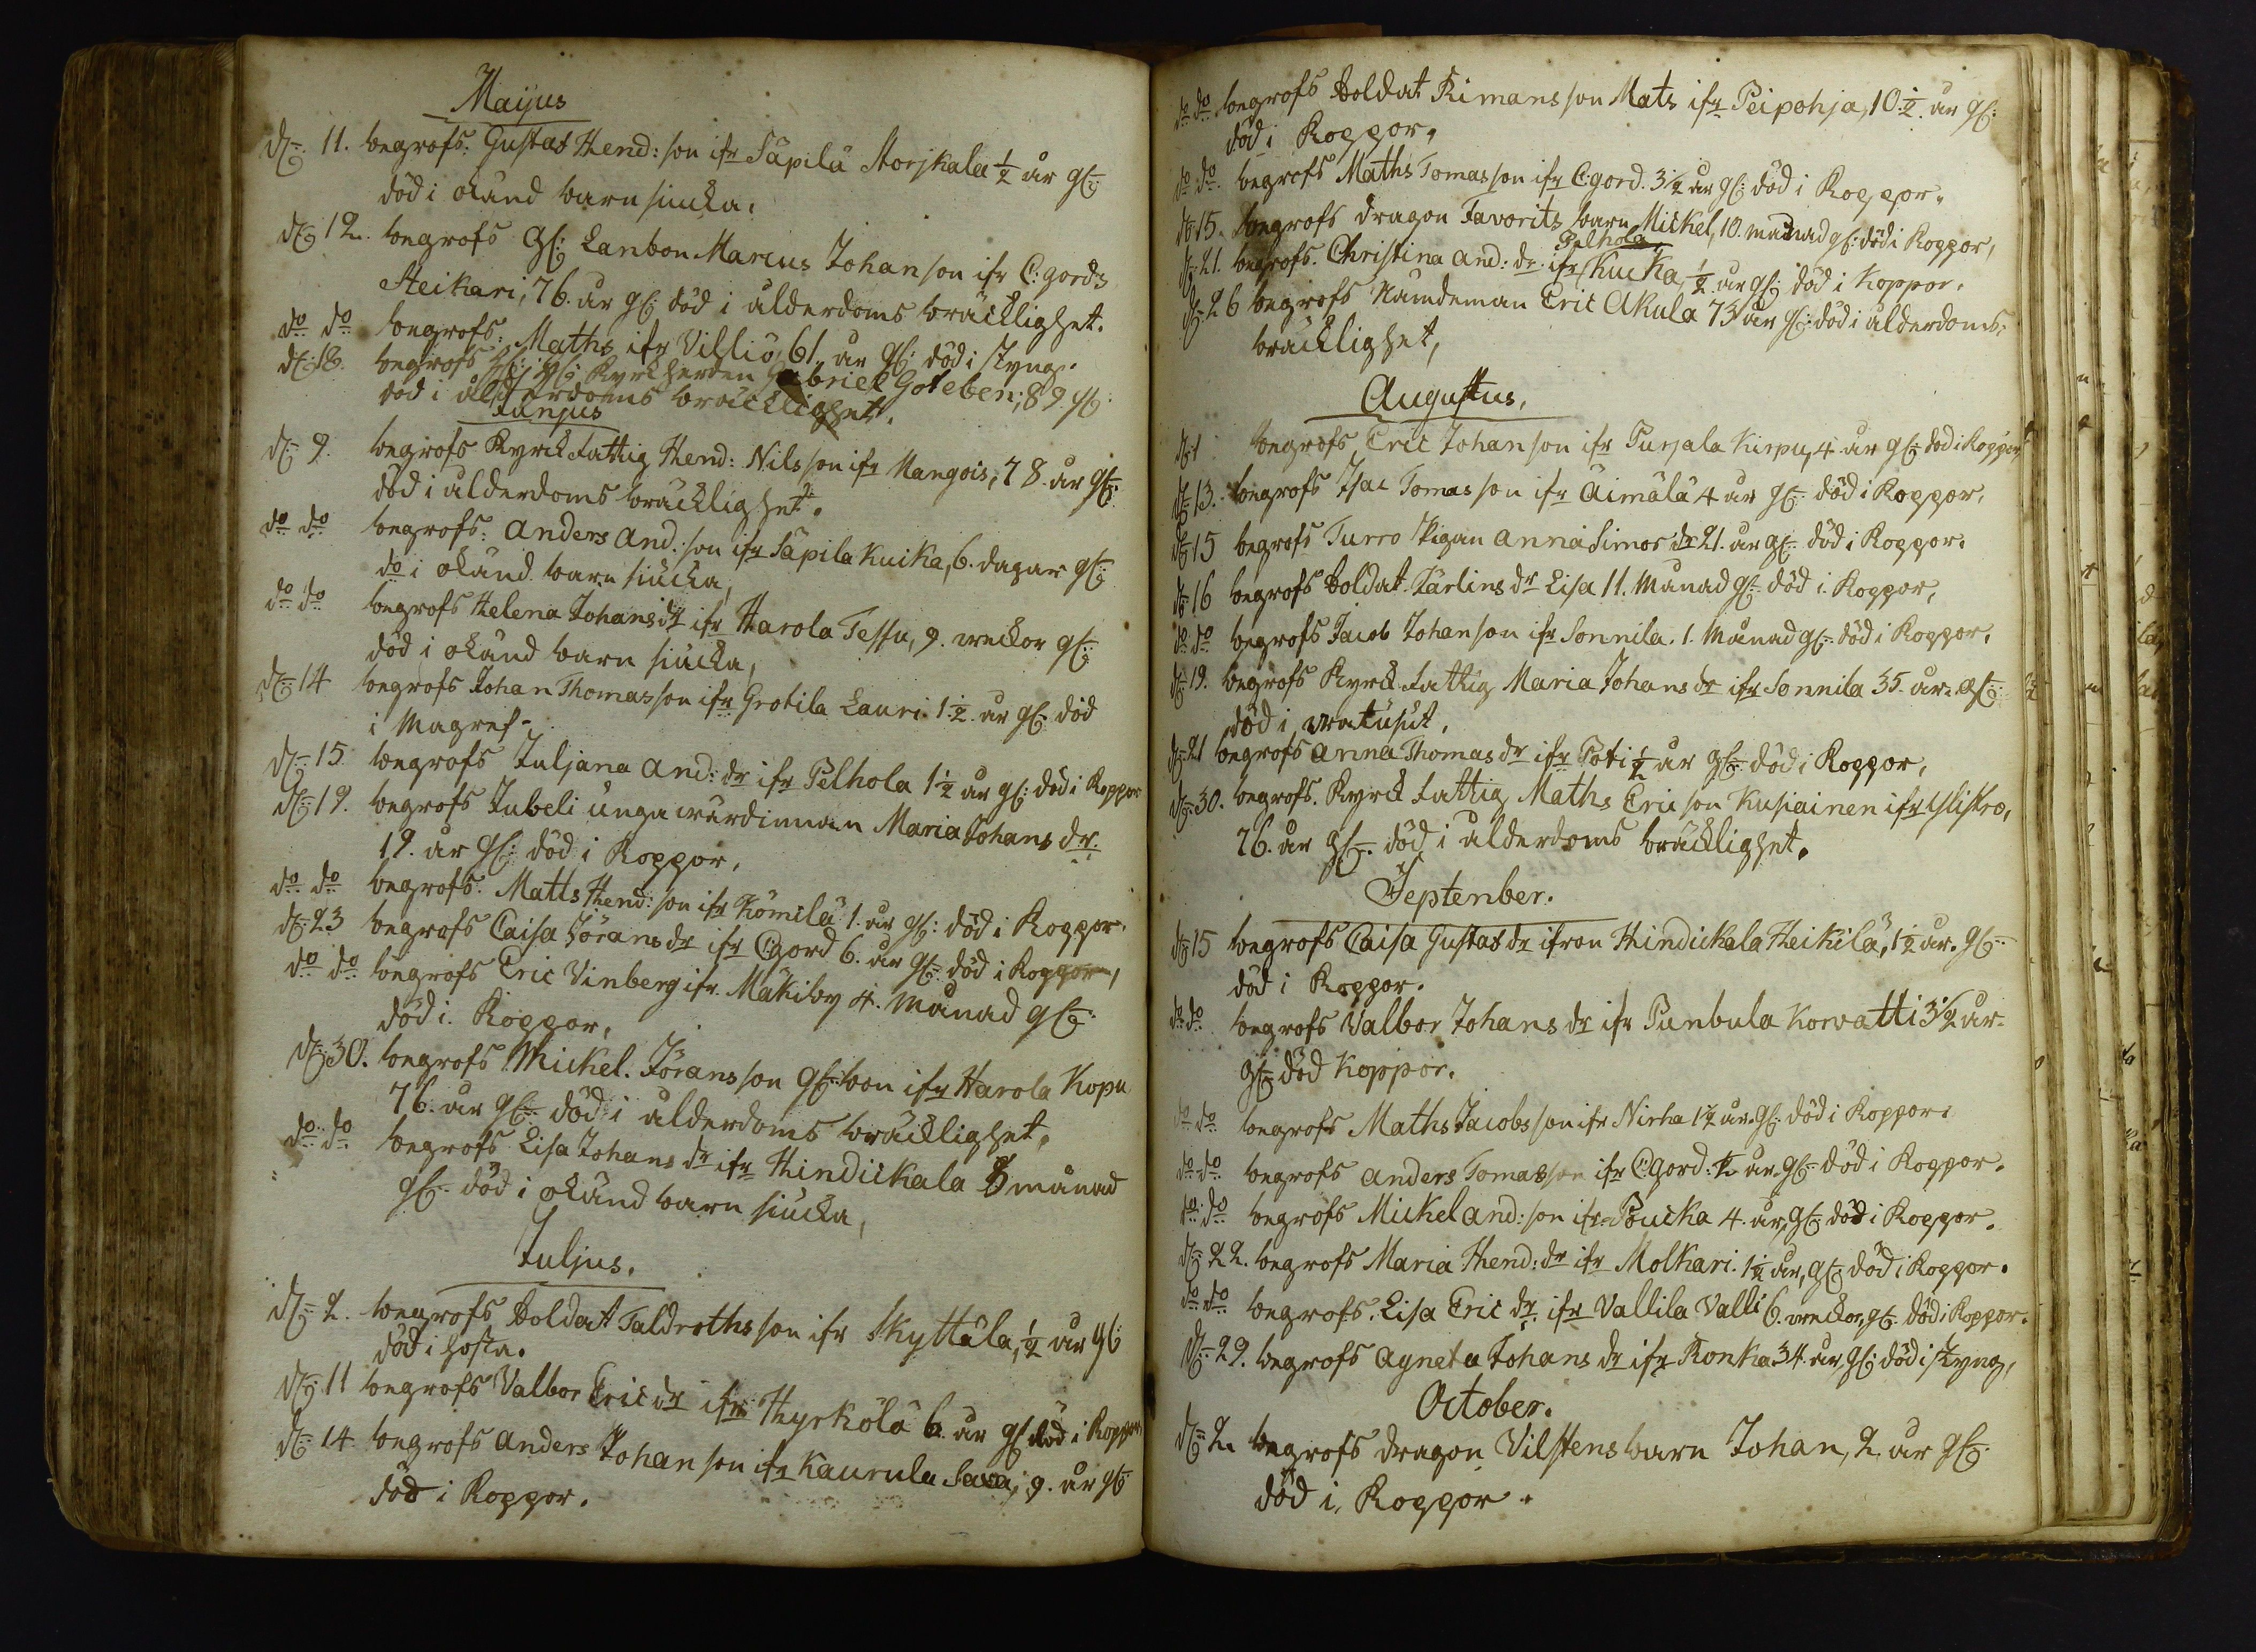 Maijus
11. begrofs: Gustaf Hend: son ifr Säpilä Storjkala ½ år gl:
död i okänd barn siucka.
12. begrofs gl: Lanbon Marcus Johanson ifr C: gords
Heikari, 76. år gl: död i ålderdoms bräcklighet.
do do begrofs: Maths ifr Villiö, 61. år gl: död i styng.
18. begrofs Kyrkherden Gabriel Goteben; 89 gl:
död i ålderdoms bräcklighet.
Junjus
9. begrofs Kyrck fattig Hend: Nilsson ifr Mangois, 78. år gl:
död i ålderdoms bräcklighet.
do do begrofs: Anders And: son ifr Säpila Kuika, 6. dagar gl:
do i okänd barn siucka,
do do begrofs Helena Johans dr ifr Harola Tessu, 9. weckor gl:
död i okänd barn siucka,
14 begrofs Johan Thomasson ifr Grotila Lauri 1 ½ år gl: död
i Magref.
15 begrofs Juljana And: dr ifr Pelhola 1 ½ år gl: död i Koppor
19. begrofs Jubeli unga wärdinnan Maria Johans dr:
19. år gl: död i Koppor,
do do begrofs. Matts Hend: son ifr Kömilä 1. år gl: död i Koppor.
23 begrofs Caisa Jörans dr ifr C:gord 6. år gl: död i Koppor,
do do begrofs Eric Vinberg ifr. Mäkiby 4. Månad gl:
död i Koppor,
30. begrofs Mickel. Jöransson gl: bon ifr Harola Kopu
76. år gl: död i ålderdoms bräcklighet,
do: do begrofs Lisa Johans dr ifr Hindickala 8 månad
gl: död i okänd barn siucka,
Juljus.
2. begrofs Soldat Taldroths son ifr Skyttälä, ½ år gl:
död i hosta.
11 begrofs Valbor Eric dr ifr Hyrkölä 6. år gl död i Koppor
14. begrofs Anders Johanson ifr Kaurula Saxa, 9. år gl:
död i Koppor.
do do begrofs Soldat Rimans son Mats ifr Peipohja, 10. ½. år gl:
död i Koppor,
do do. begrofs Maths Tomasson ifr C:gord. 3 ½ år gl: död i Koppor.
15. begrofs dragon Favorits barn Mickel, 10. månad gl: död i Koppor,
Pelhola
21. begrofs. Christina And: dr ifr Kucka, ½ år gl: död i Koppor.
26 begrofs Nämdeman Eric Akula 73 år gl: död i ålderdoms
bräcklighet,
Augustus,
1 begrofs Eric Johanson ifr Purjala Kirpu, 4. år gl: död i Koppor,
13. begrofs Isac Tomasson ifr Äimälä 4 år gl: död i Koppor,
15 begrofs Turro Pigan Anna Simos dr 21. år gl: död i Koppor.
16 begrofs Soldat Färlins dr Lisa 11. Månad gl: död i Koppor,
do do begrofs Jacob Johanson ifr Sonnila. 1. Månad gl: död i Koppor.
19. begrofs Kyrck fattig Maria Johans dr ifr Sonnila 35. år. gl:
död i
21 begrofs Anna Thomas dr ifr Poti ½ år gl: död i Koppor,
30. begrofs. Kyrck fattig Maths Ericson Kusiainen ifr Ylistro,
76. år gl: död i ålderdoms bräcklighet.
September.
15 begrofs Caisa Gustaf dr ifron Hindickala Heikilä, 1 ½ år. gl:
död i Koppor.
do do begrofs Valbor Johans dr ifr Punbula Korvatti 3 ½ år
gl: död Koppor.
do do begrofs Maths Jacobsson ifr Nirha 1 ½ år gl: död i Koppor.
do do begrofs Anders Tomasson ifr C:gord: ½ år gl: död i Koppor.
do do begrofs Mickel And: son ifr Poucka 4. år, gl: död i Koppor.
22. begrofs Maria Hend: dr ifr Molkari. 1 ½ år, gl: död i Koppor.
do do begrofs. Lisa Eric dr. ifr Vallila Valli 6. weckor, gl: död i Koppor.
29. begrofs Agneta Johans dr ifr Ronka 34. år, gl: död i styng,
October.
2. begrofs dragon Vilstens barn Johan, 2, år gl:
död i, Koppor.